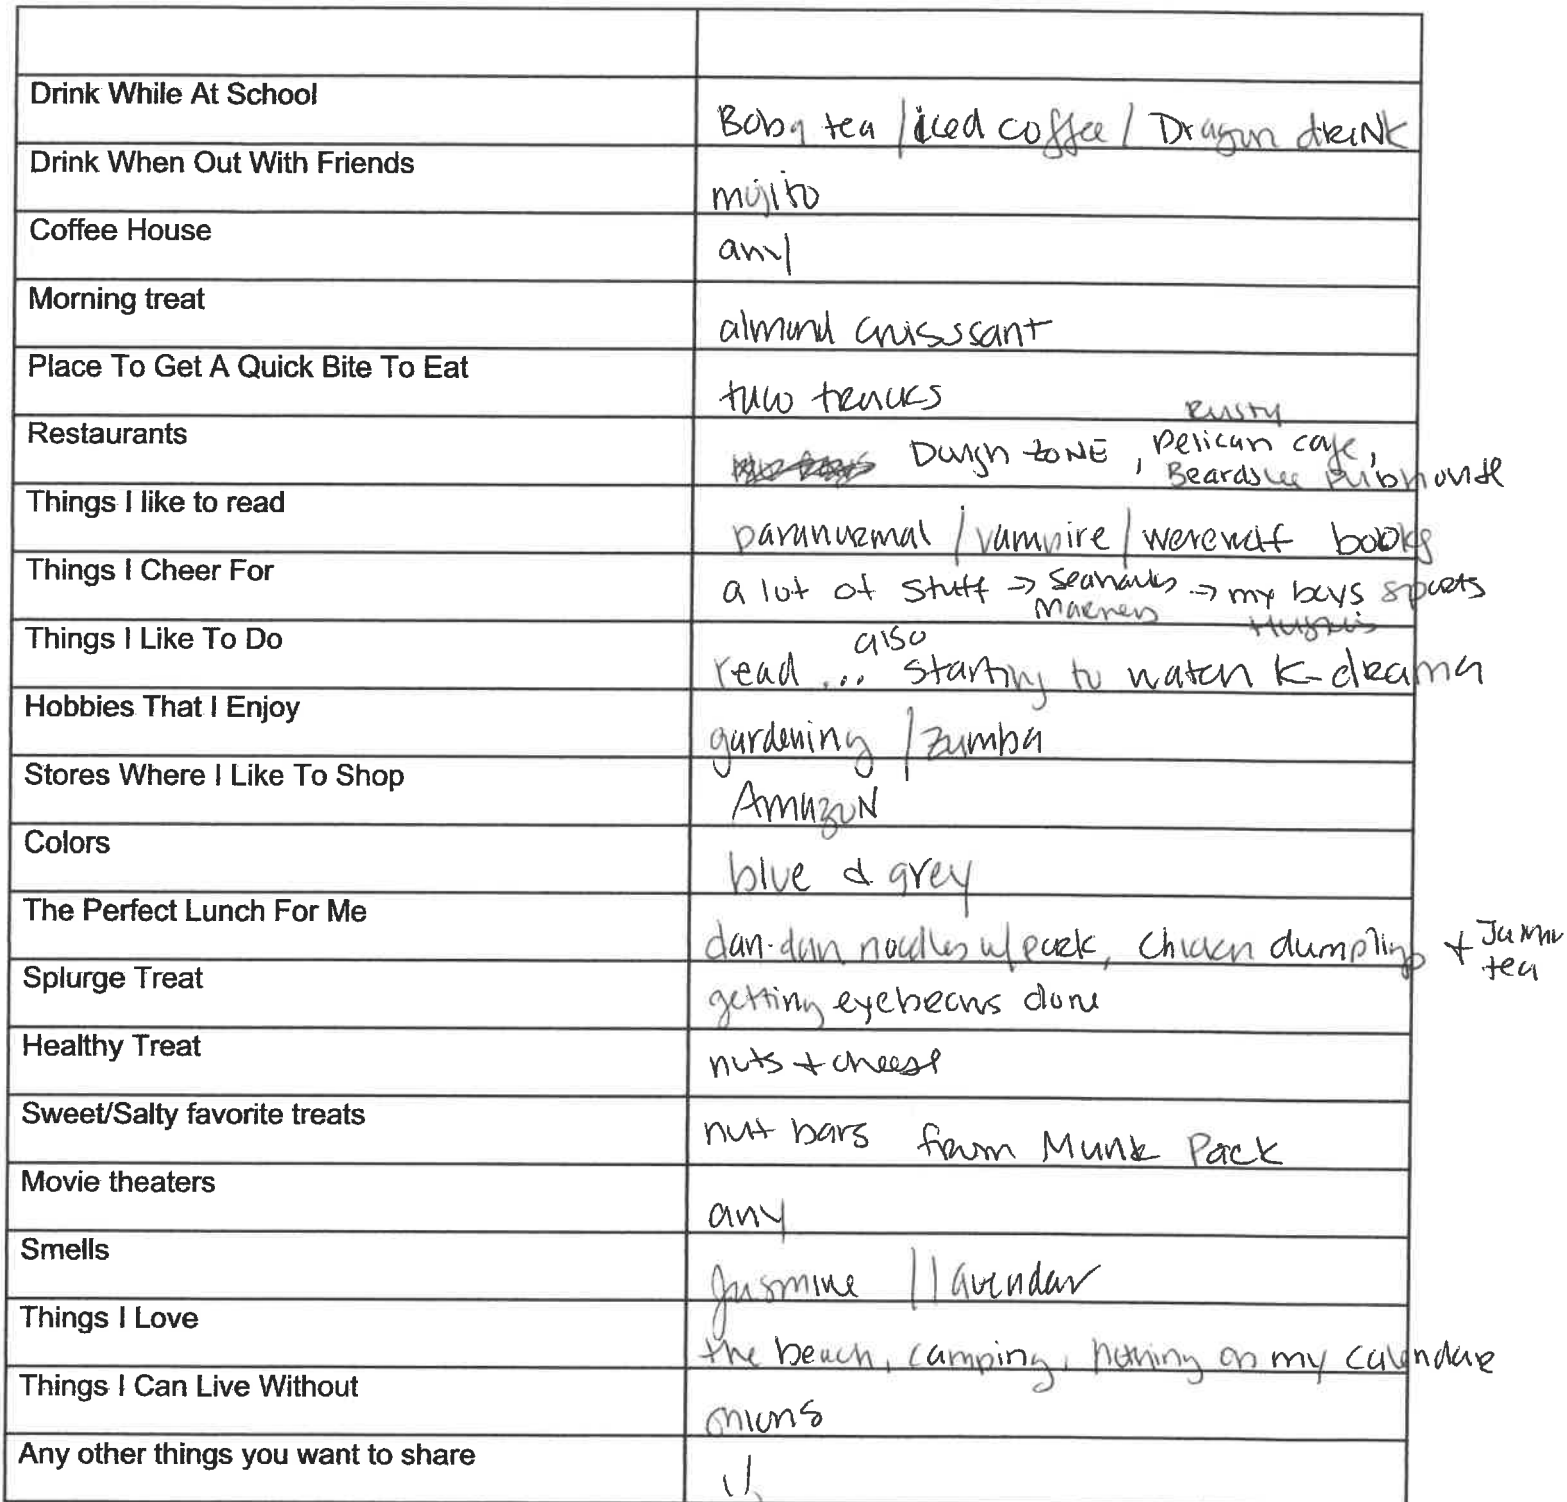 Drink While At School
Boba tea / iced coffee / Dragon drink
Drink When Out With Friends
mojito
Coffee House
any
Morning treat
almond croisssant
Place To Get A Quick Bite To Eat
taco trucks
Restaurants
Dough zone, Rusty Pelican cafe,
Beardslee pubhouse
Things I like to read
paranormal / vampire / werewolf books
Things I Cheer For
a lot of stuff → Seahawks → my boys sports
Mariners
Things I Like To Do
also
read ... starting to watch K-drama
Hobbies That I Enjoy
gardening / zumba
Stores Where I Like To Shop
Amazon
Colors
blue & grey
The Perfect Lunch For Me
dan-dan noodles w/ pork, chicken dumplings +
tea
Splurge Treat
getting eyebrows done
Healthy Treat
nuts + cheese
Sweet/Salty favorite treats
nut bars from Munk Pack
Movie theaters
any
Smells
Jasmine / lavendar
Things I Love
the beach, camping, nothing on my calendar
Things I Can Live Without
onions
Any other things you want to share